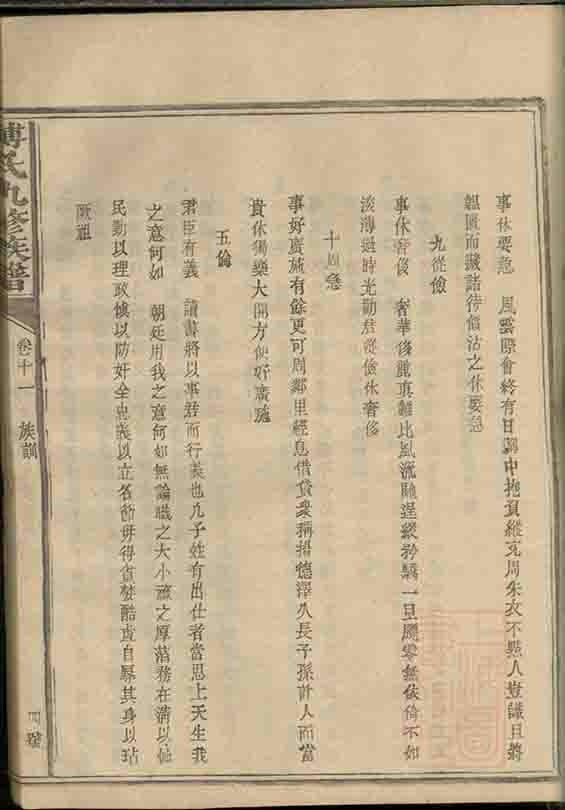 事休要急　風雲際會終有日囊中抱負縱充周朱衣不點人豈識且將
韞匱而藏諸待價沽之休要急
九從儉
事休奢侈　奢華後麗真難比風流馳逞縱矜驕一旦飄零無依倚不如
淡薄過時光勸君從儉休奢侈
十周急
事好廣施有餘更可周鄰里輕息借貸衆稱揚德澤久長子孫計人而富
貴休獨樂大開方便好廣施
五倫
君臣有義　讀書將以事君而行義也凡子姓有出仕者當思上天生我
之意何如　朝廷用我之意何如無論職之大小祿之厚薄務在清以
民勤以理政慎以防奸全忠義以立名節毋得貪婪酷虐自辱其身以玷
厥祖
傅氏九修族譜
卷十一　族訓